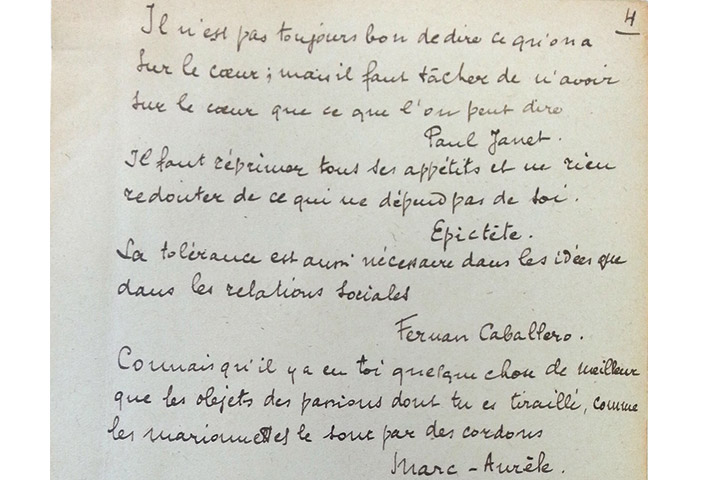 4
Il n'est pas toujours bon de dire ce qu'on a
sur le cœur ; mais il faut tâcher de n'avoir
sur le cœur que ce que l'on peut dire
Paul Janet.
Il faut réprimer tous ses appétits et ne rien
redouter de ce qui ne dépend pas de soi.
Epictète.
La tolérance est aussi nécessaire dans les idées que
dans les relations sociales
Fernan Caballero.
Connais qu'il y a en toi quelque chose de meilleur
que les objets des passions dont tu es tiraillé, comme
les marionnettes le sont par des cordons
Marc-Aurèle.